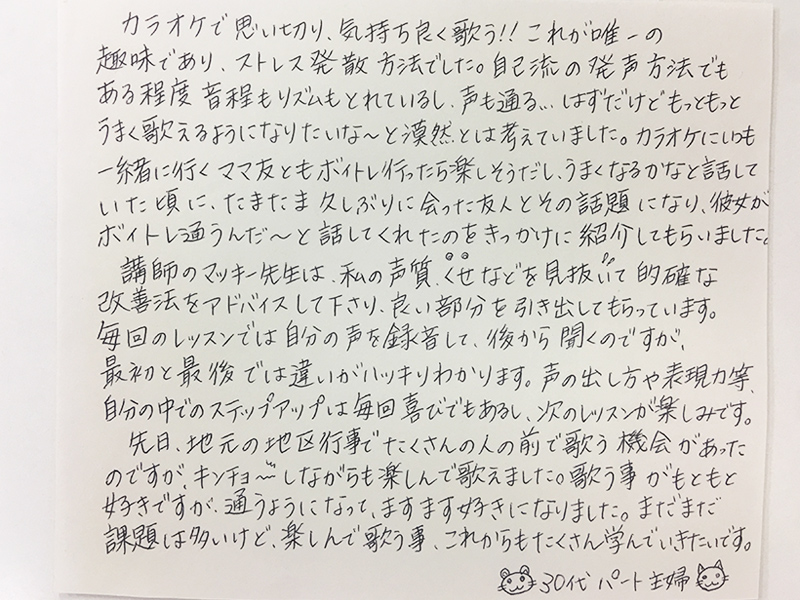 カラオケで思い切り、気持ち良く歌う!! これが唯一の
趣味であり、ストレス発散方法でした。自己流の発声方法でも
ある程度音程もリズムもとれているし、声も通る… はずだけどもっともっと
うまく歌えるようになりたいな〜と漠然とは考えていました。カラオケにいつも
一緒に行くママ友ともボイトレ行ったら楽しそうだし、うまくなるかなと話して
いた頃に、たまたま久しぶりに会った友人とその話題になり、彼女が
ボイトレ通うんだ〜と話してくれたのをきっかけに紹介してもらいました。
講師のマッキー先生は、私の声質、くせなどを見抜いて的確な
改善法をアドバイスして下さり、良い部分を引き出してもらっています。
毎回のレッスンでは自分の声を録音して、後から聞くのですが、
最初と最後では違いがハッキリわかります。声の出し方や表現力等、
自分の中でのステップアップは毎回喜びでもあるし、次のレッスンが楽しみです。
先日、地元の地区行事でたくさんの人の前で歌う機会があった
のですが、キンチョ〜しながらも楽しんで歌えました。歌う事がもともと
好きですが、通うようになって、ますます好きになりました。まだまだ
課題は多いけど、楽しんで歌う事、これからもたくさん学んでいきたいです。
30代 パート主婦